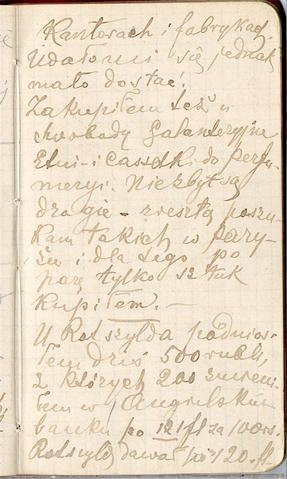 Kantorach i fabrykach.
Udało mi się jednak
mało dostać;
Zakupiłem też w
Galanteryjne
Etui-i cassetki do perfu-
meryi. Niezbyt są
drogie - zresztą poszu-
kam takich w Pary-
żu i dla tego po
parę tylko sztuk
Kupiłem. —
U Rotszylda podnios-
łem dziś 500 rubli,
z których 200 zmieni-
łem w Angielskim
banku po 121 fl za 100 rs.
Rotszyld dawał po 120 fl.